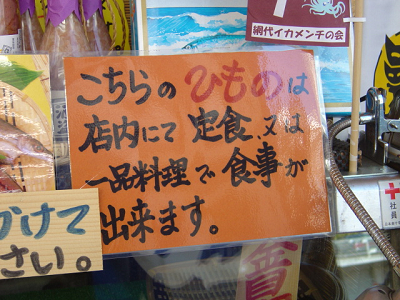 網代イカメンチの会
こちらの ひもの は
店内にて 定食、又は
一品料理で 食事が
出来ます。
づけて
さい。
社員